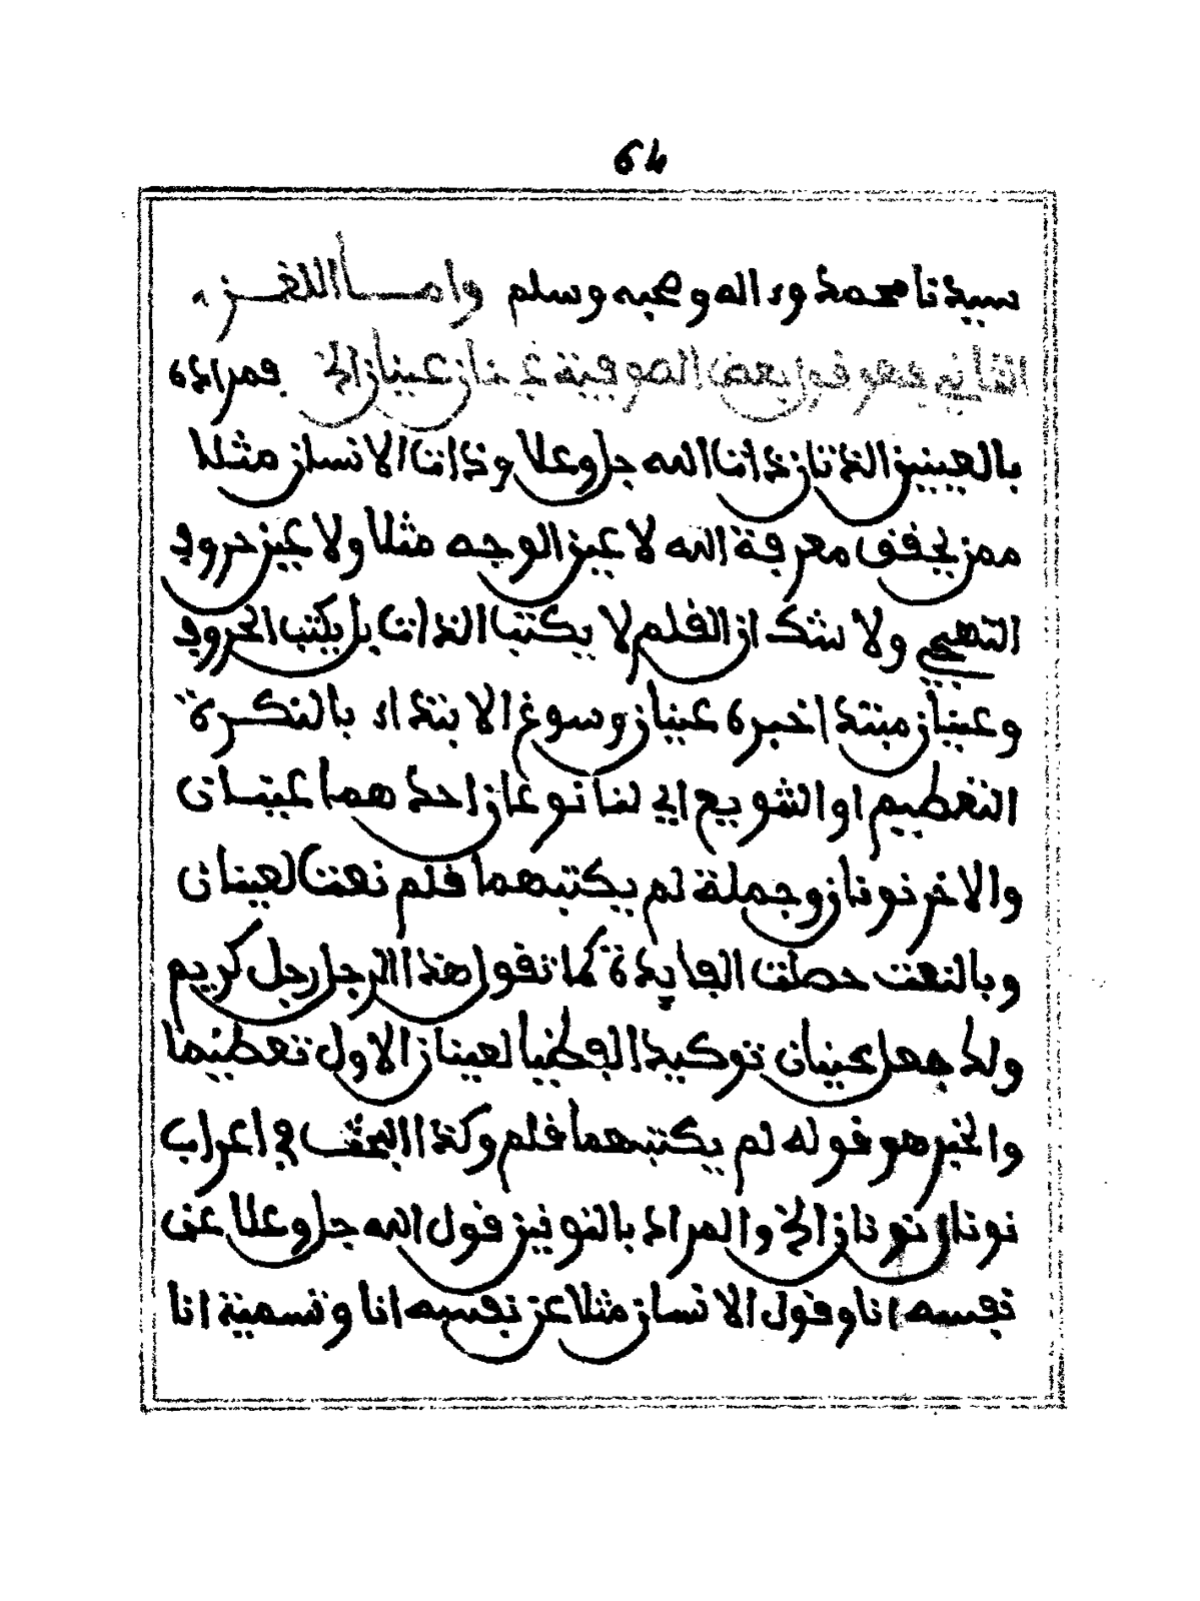 64
سيدنا محمد وءاله وصحبه وسلم وامـا اللغـز
الثاني فهو قول بعض الصوفية عينان عينان الخ فمراده
بالعينين الذاتان ذات الله جل وعلا وذات الانسان مثلا
ممن يحقق معرفة الله لا عين الوجه مثلا ولا عين حروف
التهجي ولا شك ان القلم لا يكتب الذات بل يكتب الحروف
وعينان مبتدا خبره عينان وسوغ الابتداء بالنكرة
التعظيم او التنويع اي لنا نوعان احدهما عينان
والاخر نونان وجملة لم يكتبهما قلم نعت لعينان
وبالنعت حصلت الفايدة كما تقول هذا الرجل رجل كريم
ولك جعل عينان توكيدا لفظيا لعينان الاول تعظيما
والخبر هو قوله لم يكتبهما قلم وكذا البحث في اعراب
نونان نونان الخ والمراد بالنونين قول الله جل وعلا عن
نفسه انا وقول الانسان مثلا عن نفسه انا وتسمية انا